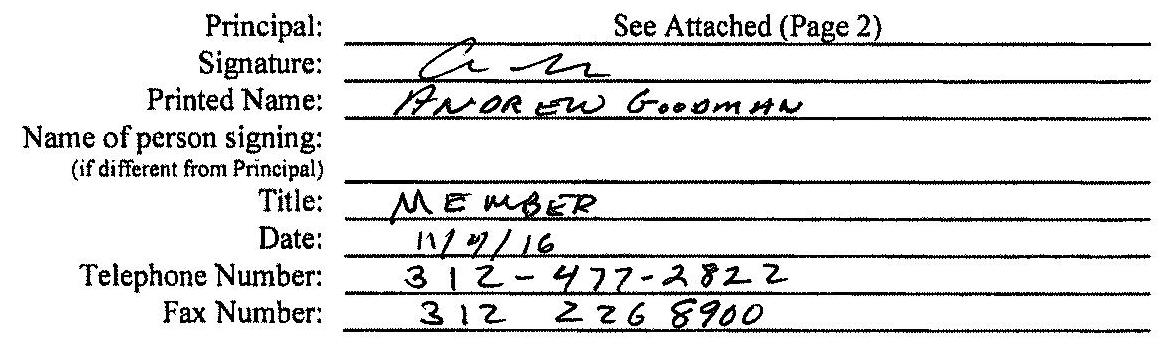 Principal: See Attached (Page 2)
Signature:
Printed Name: ANDREW GOODMAN
Name of person signing:
(if different from Principal)
Title: MEMBER
Date: 11/7/16
Telephone Number: 312-477-2822
Fax Number: 312 226 8900